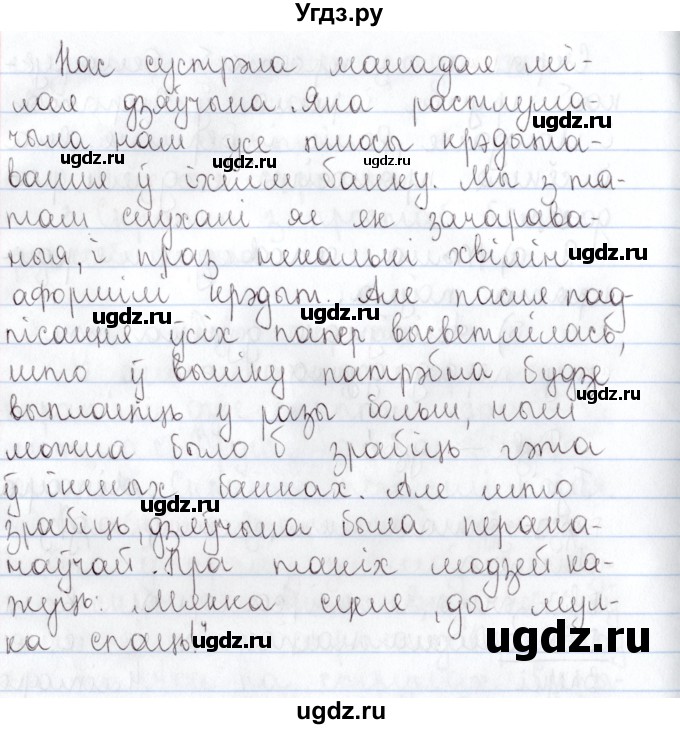 Угдз.ру
Нас сустрэла маладая мі-
лая дзяўчына. Яна растлума-
чыла нам усе плюсы крэдыта-
вання ў іхнім банку. Мы з та-
там слухалі яе як зачарава-
ныя, і праз некалькі хвілін
аформілі крэдыт. Але пасля пад-
пісання ўсіх папер высветлілась,
што ў выніку патрэбна будзе
выплаціць у разы больш, чым
можна было б зрабіць гэта
ў іншых банках. Але што
зрабіць, дзяўчына была перака-
наўчай. Пра такіх людзей ка-
жуць: „Мякка сцеле, ды мул-
ка спаць."
ugdz.ru
ugdz.ru
ugdz.ru
ugdz.ru
ugdz.ru
ugdz.ru
ugdz.ru
ugdz.ru
ugdz.ru
ugdz.ru
ugdz.ru
ugdz.ru
ugdz.ru
ugdz.ru